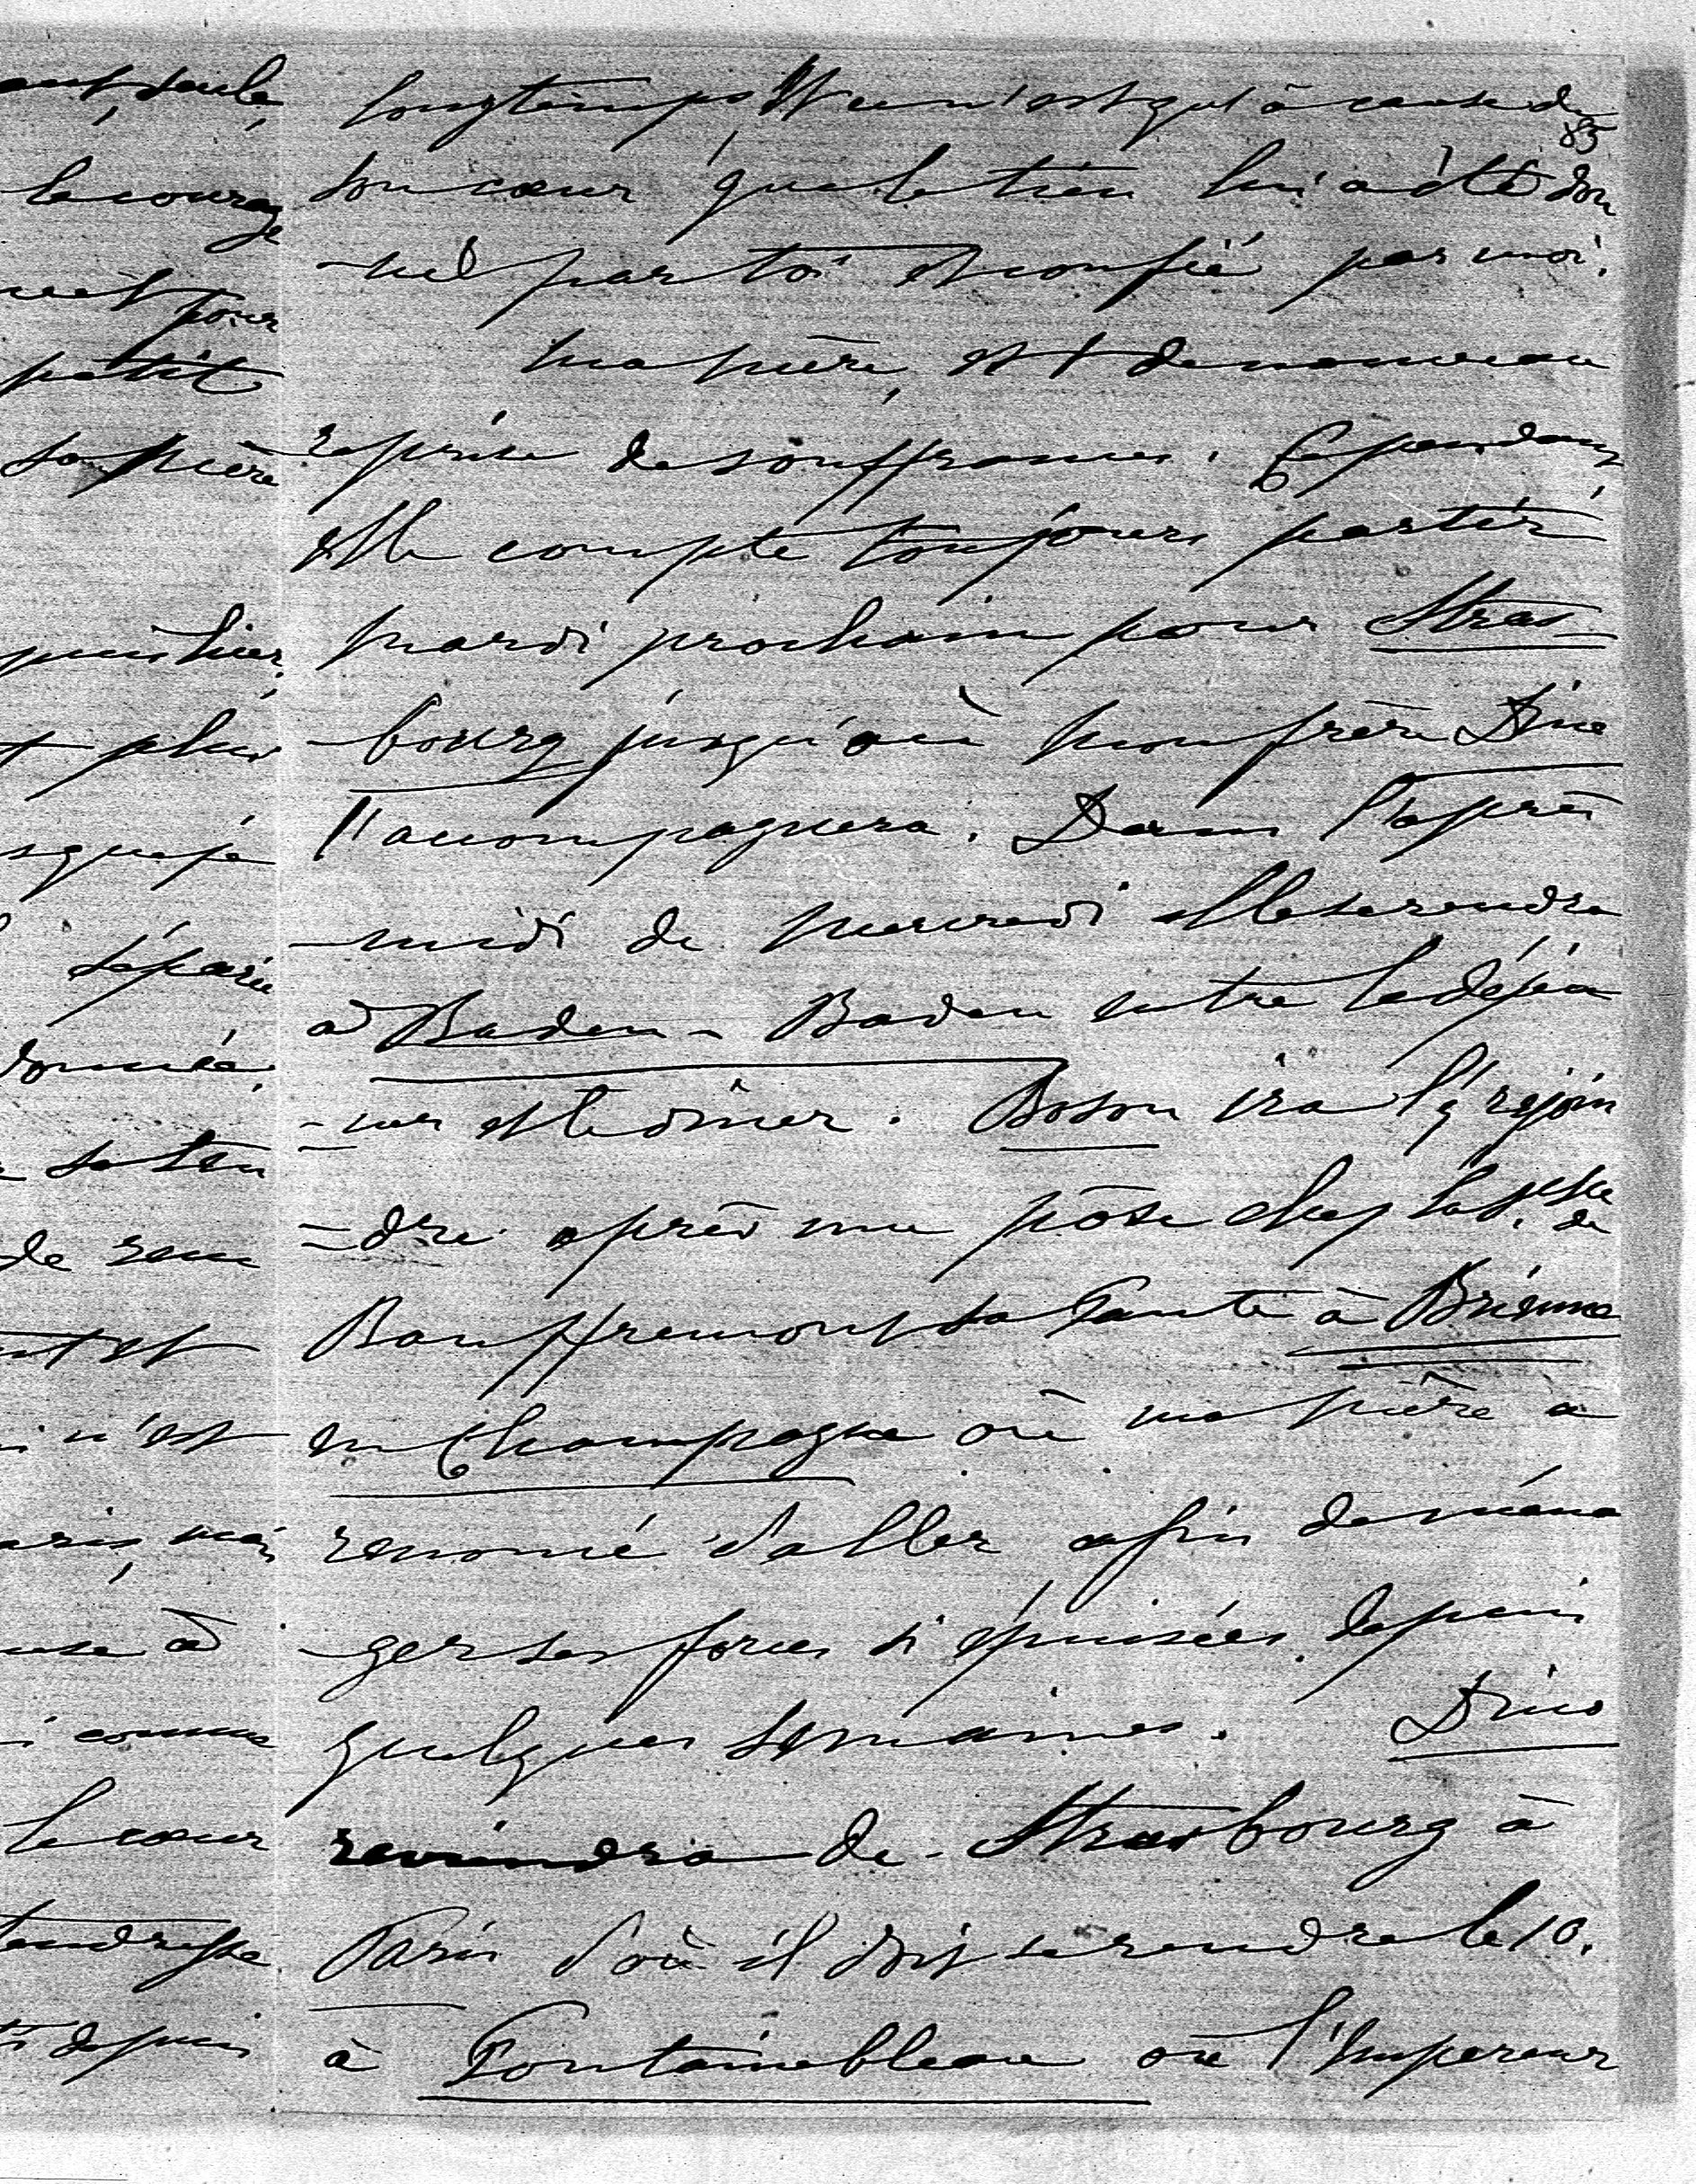 ant, seule,
le courage
pour
petit
sa mère
plus
sque je
sépare
donnée,
de
n'est
à
comme
le cœur
tendresse
depuis
longtemps, et ce n'est qu'à cause de
85
son cœur que le tien lui a été don
-né par toi et confié par moi.
Ma mère, est de nouveau
reprise de souffrances. Cependant,
elle compte toujours partir
mardi prochain pour Stras-
-bourg jusqu'où mon frère Dino
l'accompagnera. Dans l'après
-midi de mercredi elle se rendra
à Baden-Baden entre le déjeu
-ner et le dîner. Boson ira l'y rejoin
-dre après une pôse chez la Psse de
Bauffremont sa Tante à Brienne
en Champagne où ma mère a
renoncé d'aller afin de ména
-ger ses forces si épuisées depuis
quelques semaines. Dino
reviendra de Strasbourg à
Paris d'où il doit se rendre le 10.
à Fontainebleau où l'Empereur